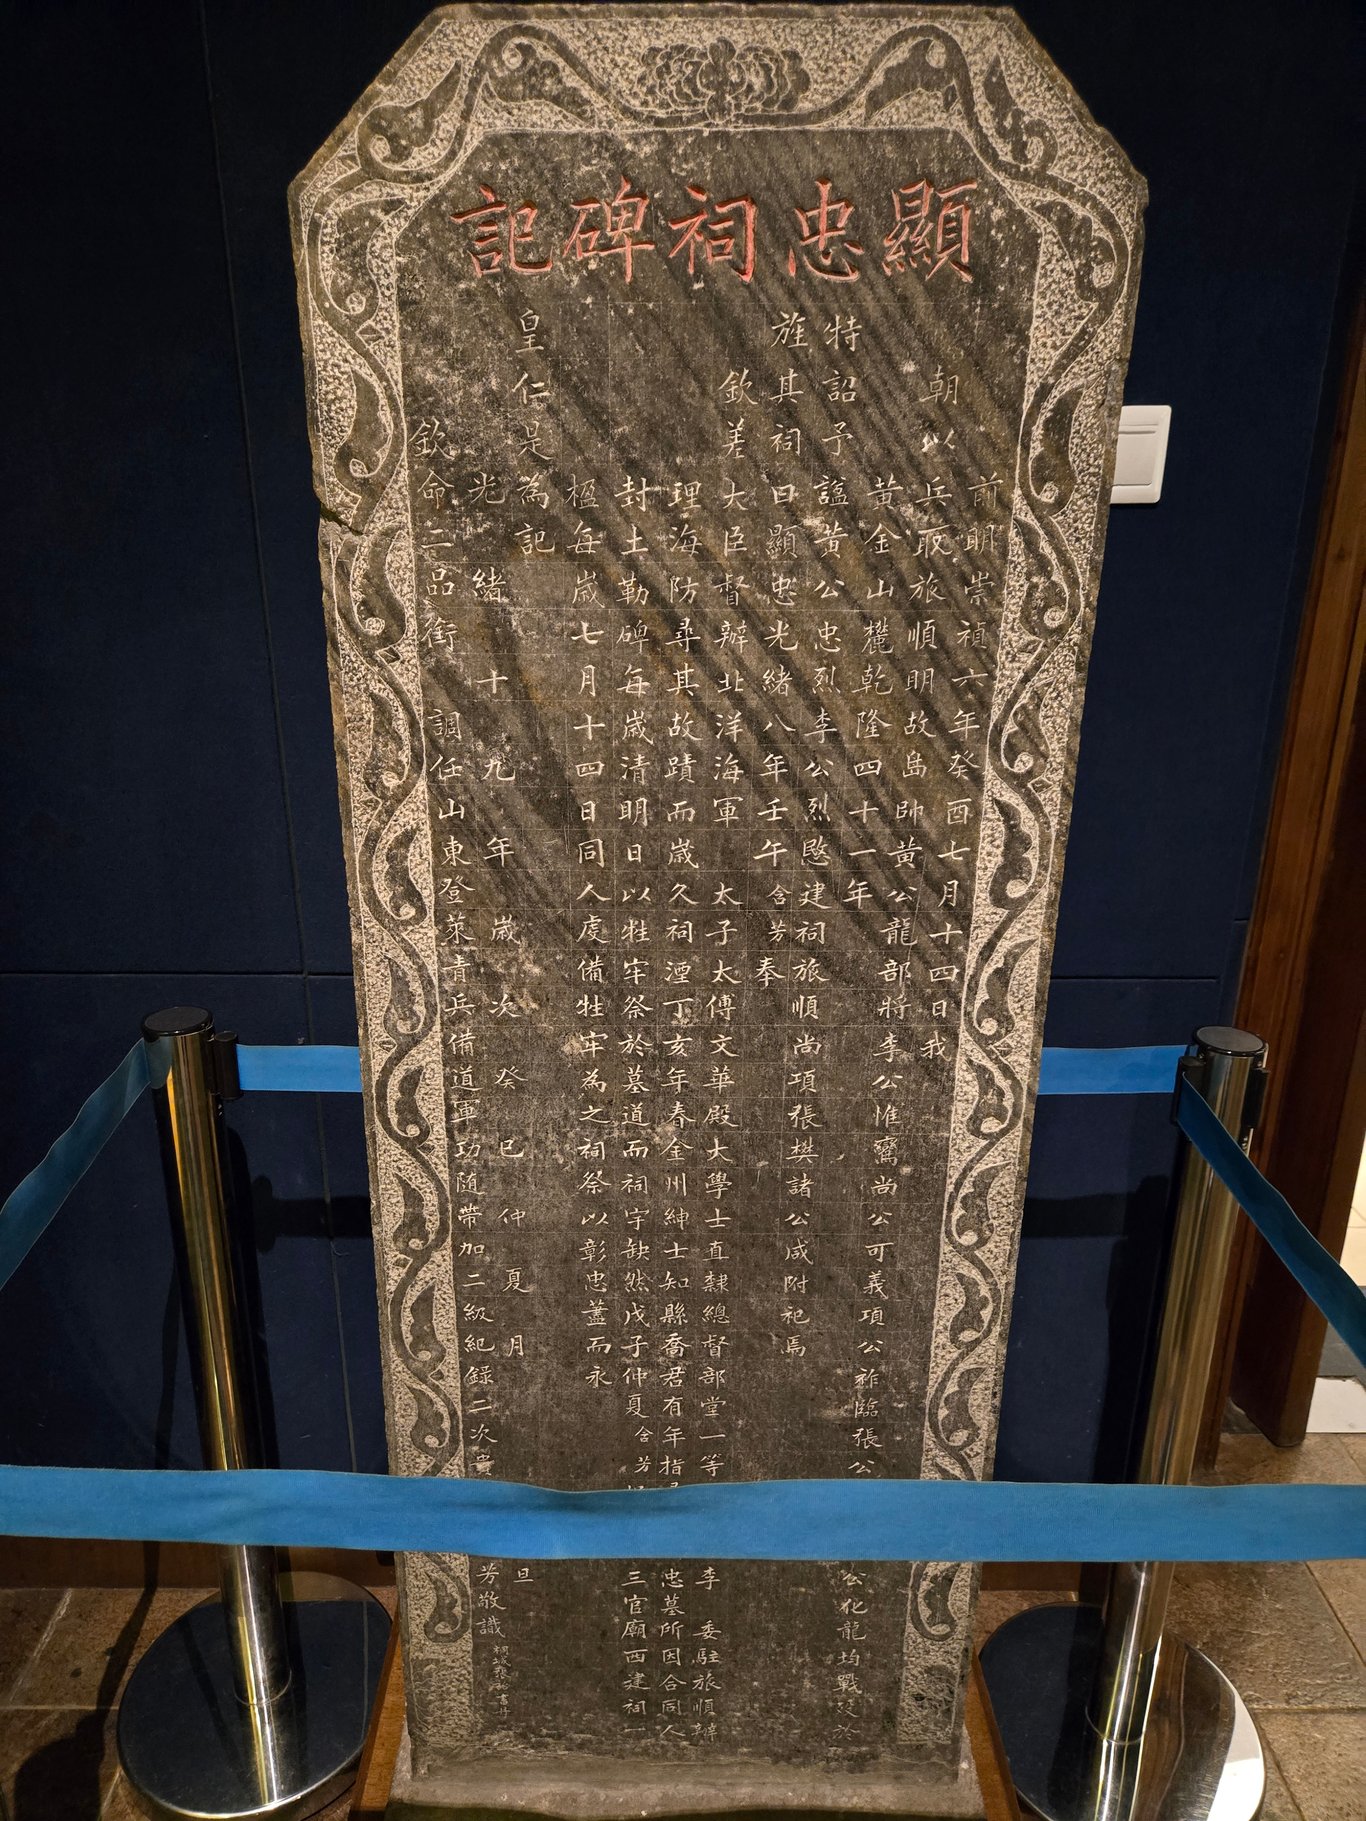 顯忠祠碑記
前明崇禎六年癸酉七月十四日我
朝以兵取旅順明故島帥黃公龍部將李公惟鸞尚公可義項公祚臨張公 公化龍均戰歿於
黃金山麓乾隆四十一年
特詔予諡黃公忠烈李公烈愍建祠旅順尚項張樊諸公咸附祀焉
旌其祠曰顯忠光緒八年壬午含芳奉
欽差大臣督辦北洋海軍 太子太傅文華殿大學士直隸總督部堂一等 李 委駐旅順辦
理海防尋其故蹟而歲久祠湮丁亥年春金州紳士知縣喬君有年指 忠墓所因合同人
封土勒碑每歲清明日以牲牢祭於墓道而祠宇缺然戊子仲夏含芳 三官廟西建祠一
楹每歲七月十四日同人虔備牲牢為之祠祭以彰忠藎而永
皇仁是為記
光緒十九年歲次癸巳仲夏月 旦
欽命二品銜 調任山東登萊青兵備道軍功隨帶加二級紀錄二次 芳敬識